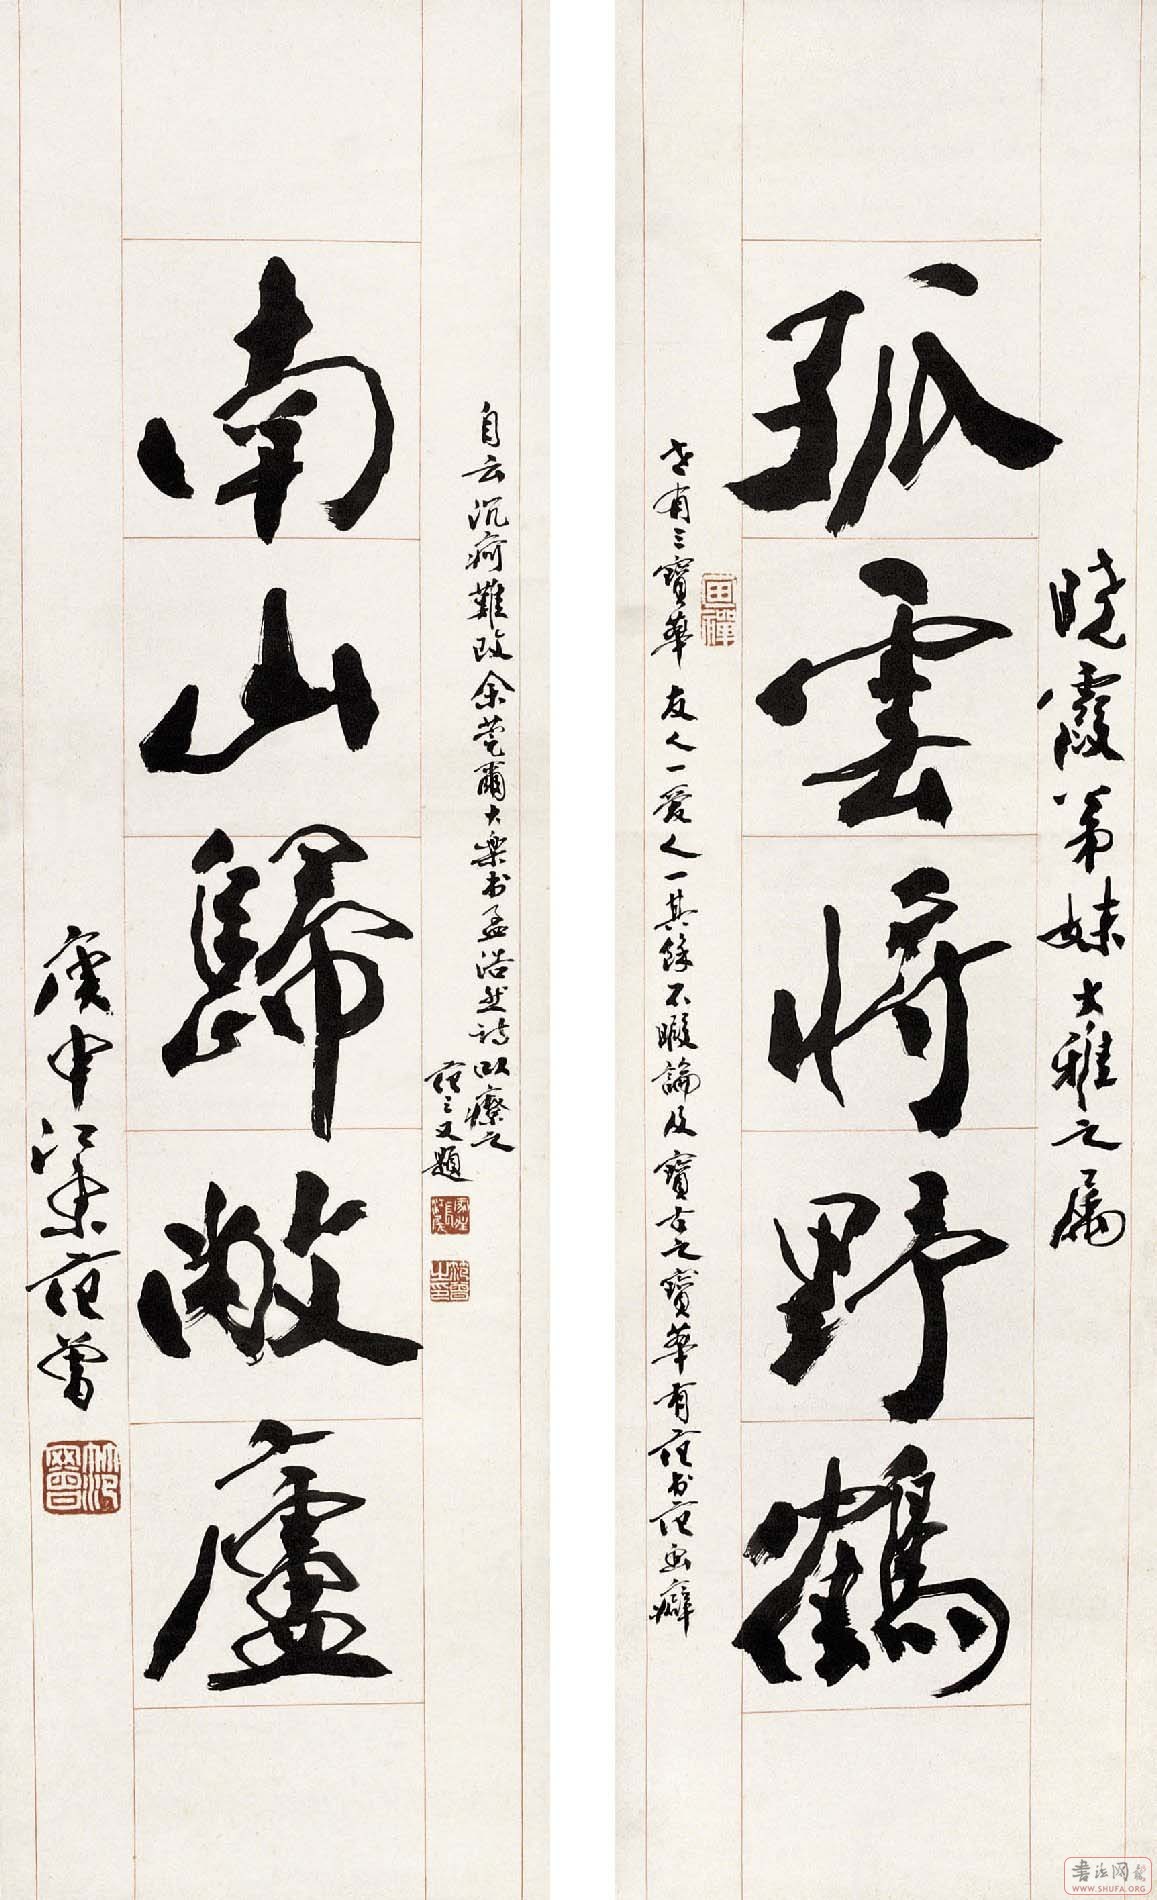 曉霞弟妹大雅之屬
孤雲將野鶴
世有三寶華友人一愛人一其餘不暇論及寶古之寶華有范書范畫癖
自云沉疴難改余莞爾大樂書孟浩然詩以療之
范之又題
南山歸敝廬
庚申江東范曾
范曾
書法網
WWW.SHUFA.ORG